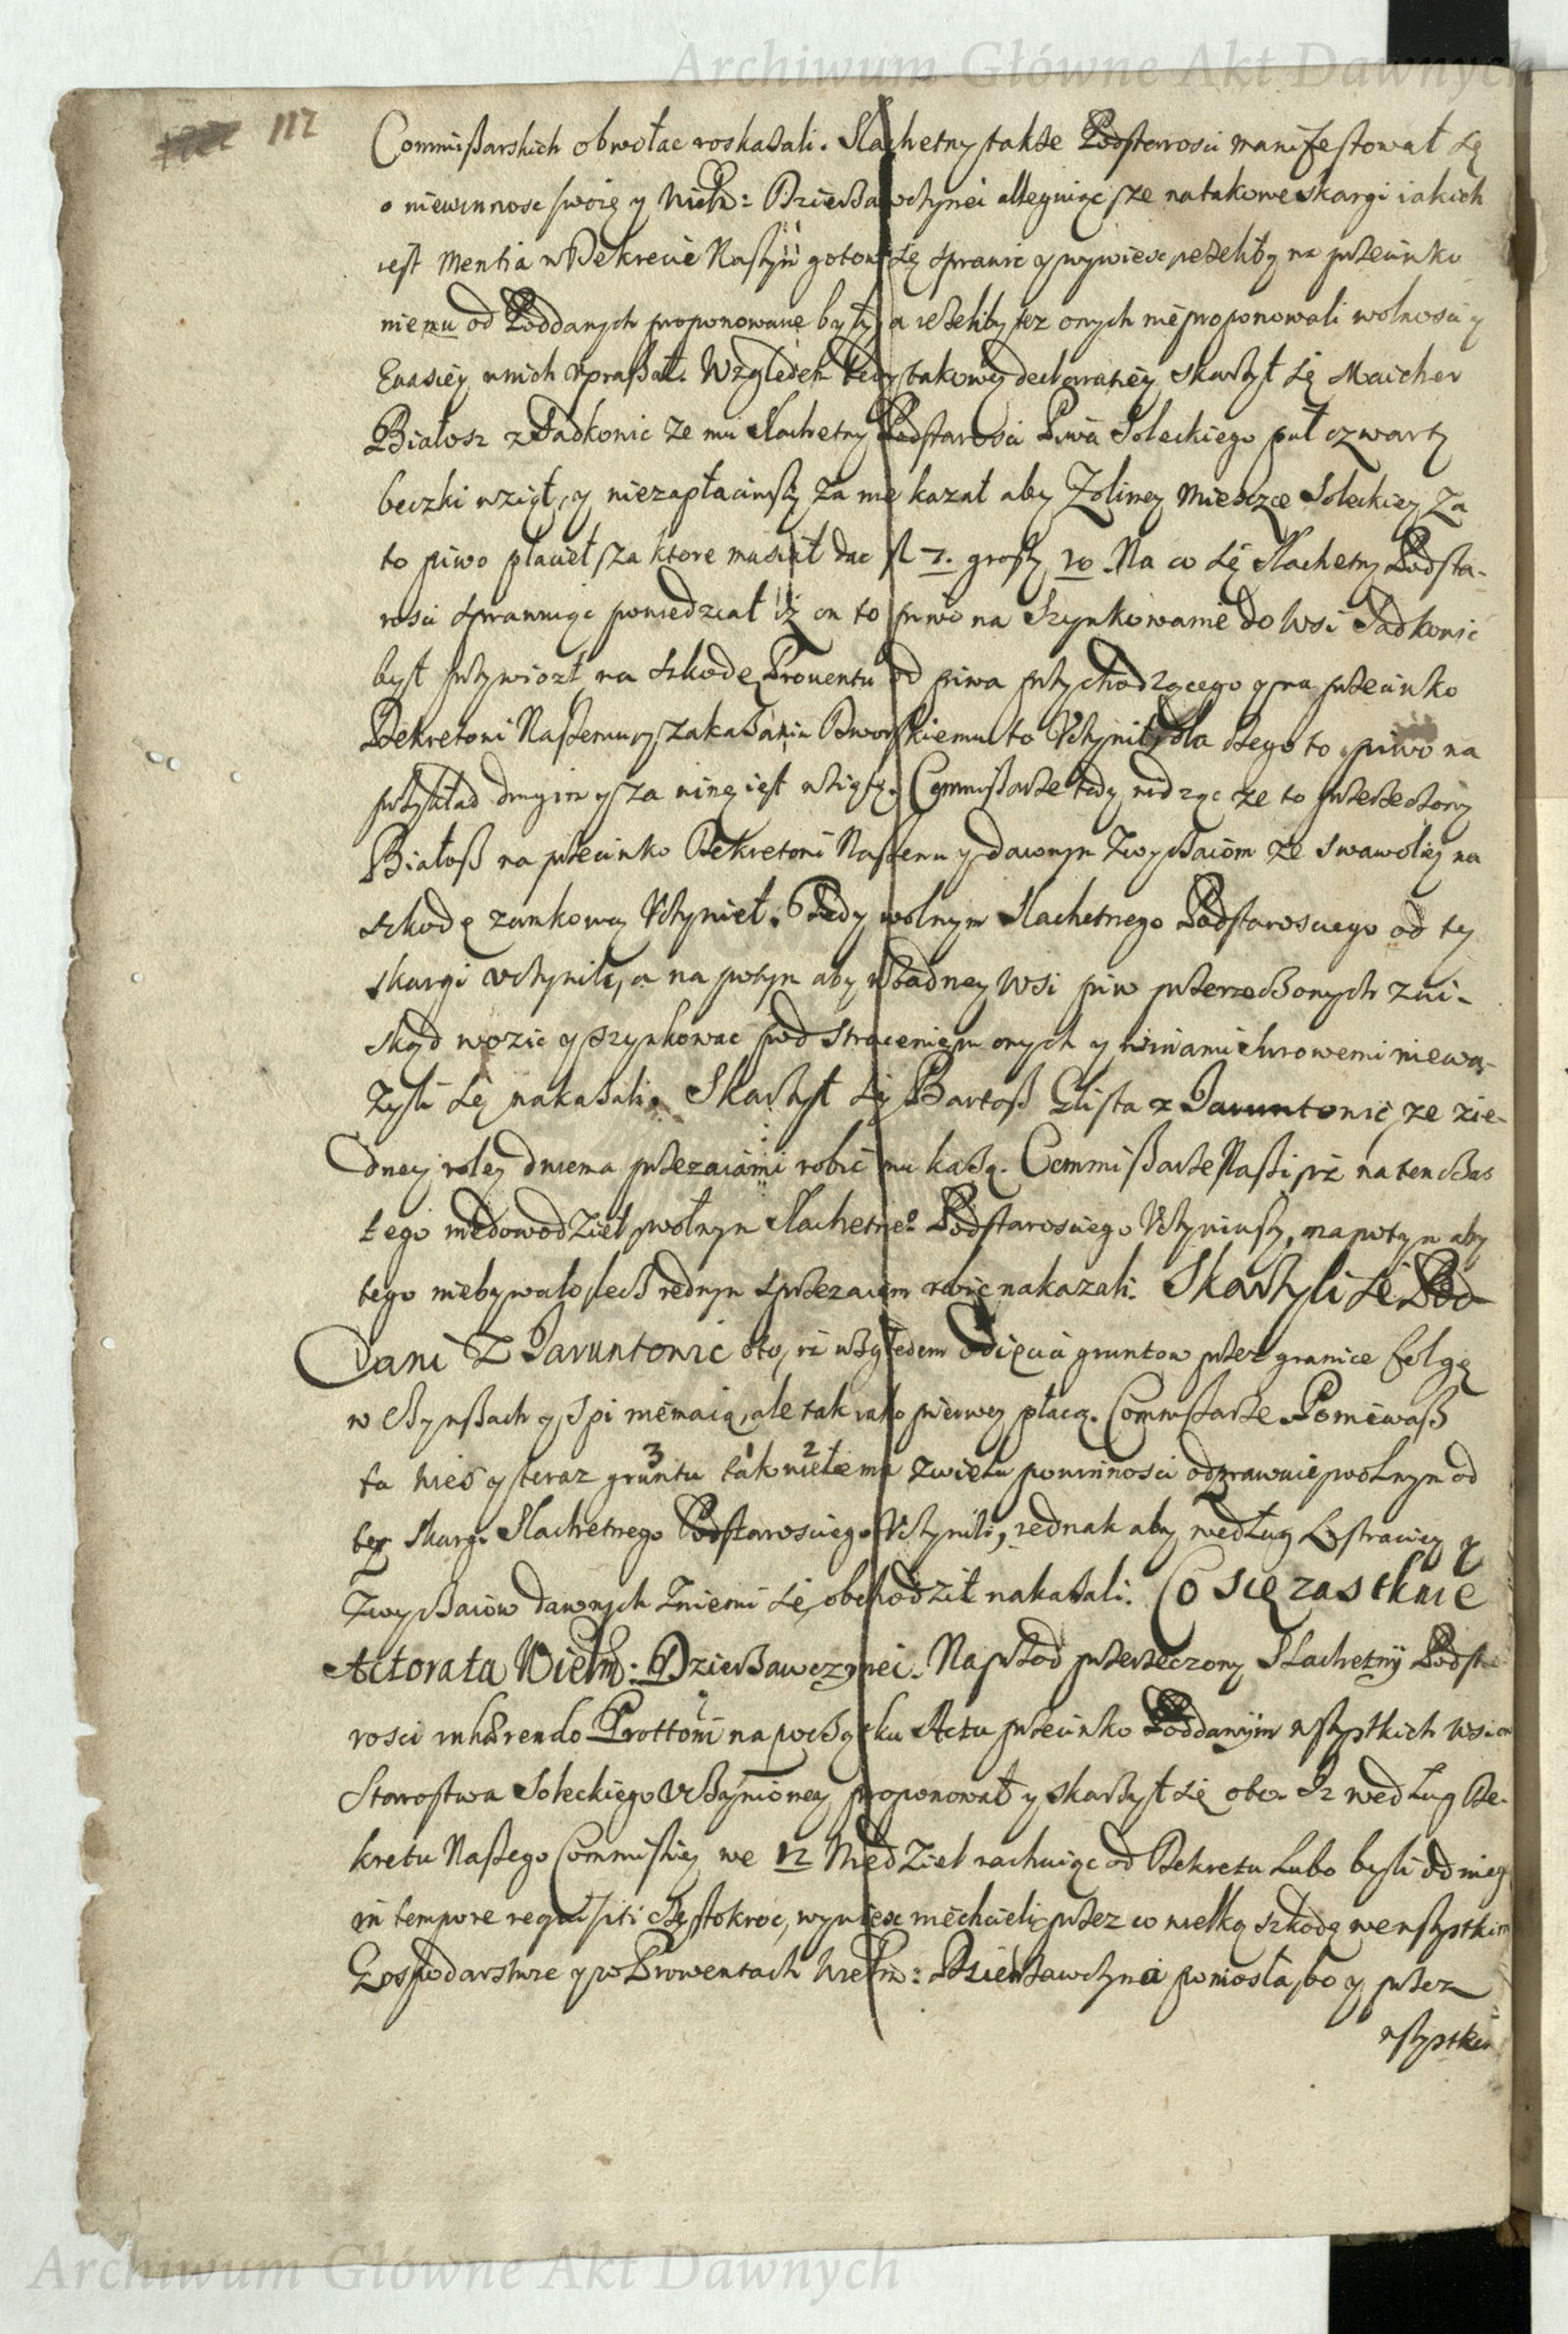 Archiwum Główne Akt Dawnych
112
Commißarskich obwołac roskazali. Slachetny takze Podstarosci manifestował się
o niewinnosc swoię y Wielm: Dzierzawczynei alleguiąc, ze na takowe skargi iakich
iest mentia w Dekrecie Naszym gotow się sprawic y wywiesc jezeliby na przeciwko
niemu od Poddanych proponowane były, a iezeliby tez onych nie proponowali wolnosci y
Euasiey u nich upraszał. Względem tedy takowey declaratiey skarzył się Maicher
Białosz z Sadkowic ze mu Slachetny Podstarosci Piwa Soleckiego puł czwarty
beczki wziął, y niezapłaciwszy za nie kazał aby Zoliney Mieszce Soleckiey za
to piwo płacieł, za ktore musiał dac fl 7. groszy 10. Na co się Slachetny Podsta-
rosci sprawuiąc powiedział iż on to piwo na Szynkowanie do Wsi Sadkowic
był przywiozł na szkodę Prouentu od piwa przychodzącego y na przeciwko
Dekretowi Naszemu y zakazaniu Dworskiemu to Uczynił, dla czego to piwo na
przykład drugim y za winę iest wzięte. Commißarze tedy widząc ze to przerzeczony
Białosz na przeciwko Dekretowi Naszemu y dawnym Zwyczaiom ze swawoliey na
szkodę zamkową Uczynieł. Tedy wolnym Slachetnego Podstarosciego od tey
skargi uczynili, a na potym aby w zadney Wsi piw przerzeczonych zni-
skąd wozic y szynkowac pod straceniem onych y winami surowemi niewa-
zyli się nakazali. Skarzył się Bartosz Glista z Jaruntowic, ze zie-
dney roley dwiema przezaiami robić mu kazą. Commißarze Naszi iż na ten czas
tego niedowodził, wolnym Slachetneo Podstarosciego Uczyniwszy, na potym aby
tego niebywało, lecz iednym sprzezaiem robic nakazali. Skarzyli sie Pod
dani z Jaruntowic oto, iż względem odięcia gruntow przez granice folgę
w Czynszach y Spi niemaią, ale tak iako pierwey płacą. Commißarze Poniewasz
ta wies y teraz gruntu tak wiele ma zwiela powinnosci odprawuie, wolnym od
tey Skargi Slachetnego Podstarosciego Uczynili, iednak aby według Lustraciey y
Zwyczaiow dawnych z niemi się obchodził nakazali. Co się zas tknie
Actorata Wielm: Dzierzawczynei. Naprzod przerzeczony Slachetny Podsta
rosci inhærendo Prottoni na początku Actu przeciwko Poddanym wszystkich Wsiow
Starostwa Soleckiego Uczynioney proponował y skarzył się oto. Iz według De-
kretu Naszego Commißiey we 12 Niedziel rachuiąc od Dekretu Lubo byli od niego
in tempore requisiti częstokroc, wywiesc niechcieli, przez co wielką szkodę we wszystkim
Gospodarstwie y w Prowentach Wielm: Dzierzawczyna poniosła, bo y przez
wszystkie
Archiwum Główne Akt Dawnych